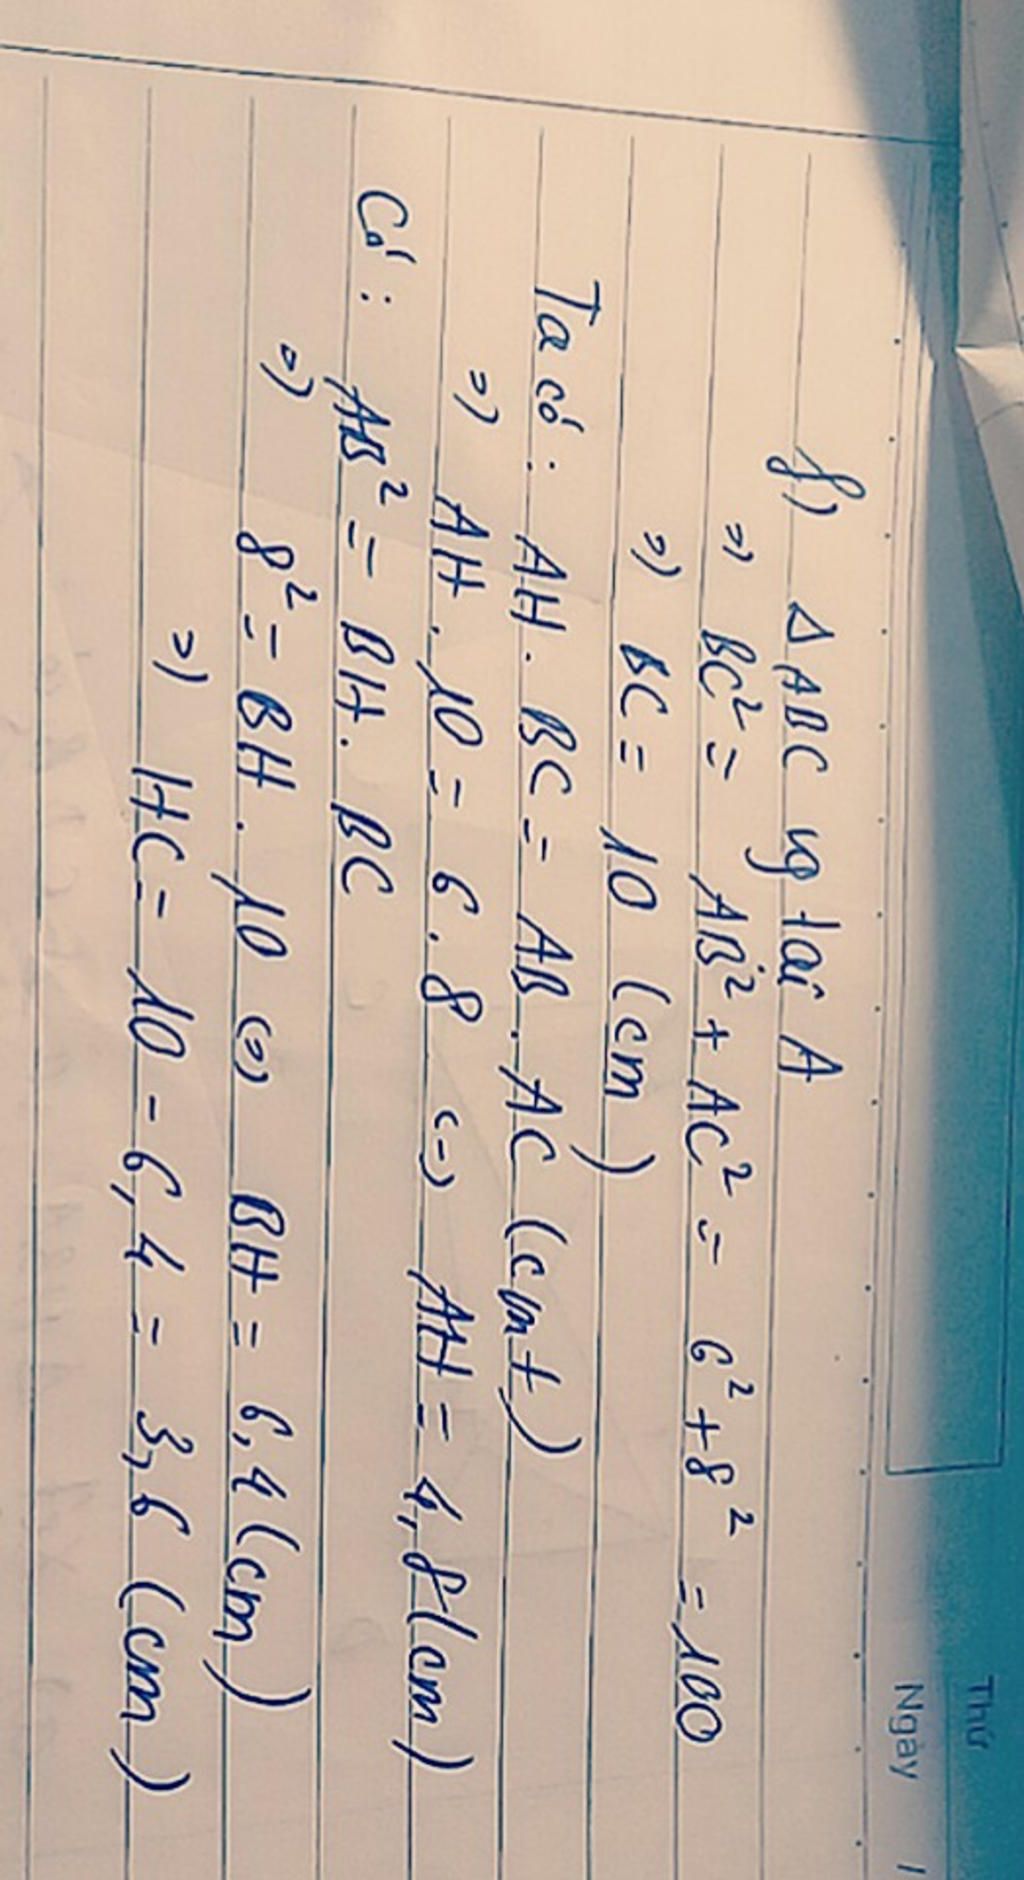 Thứ
Ngày /
f) Δ ABC vg tại A
=) BC² = AB² + AC² = 6² + 8² = 100
=) BC = 10 (cm)
Ta có : AH . BC = AB . AC (cmt)
=) AH . 10 = 6 . 8 (=) AH = 4,8 (cm)
Có : AB² = BH . BC
=) 8² = BH . 10 (=) BH = 6,4 (cm)
=) HC = 10 - 6,4 = 3,6 (cm)